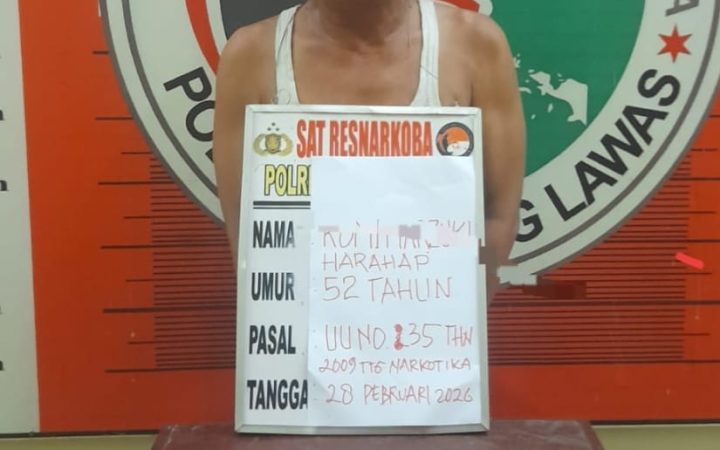 SAT RESNARKOBA
POLRI
NAMA : HARAHAP
UMUR : 52 TAHUN
PASAL : UU NO. 35 THN
2009 TTG NARKOTIKA
TANGGA : 28 PEBRUARI 2026
G LAWAS